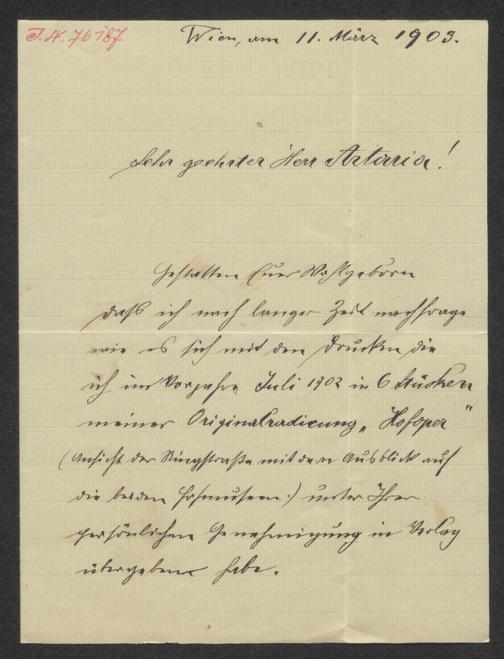 J.N. 76787
Wien, am 11. März 1903.
Sehr geehrter Herr Artaria!
Gestatten Euer Wohlgeboren
daß ich nach langer Zeit nachfrage
wie es sich mit den Drucken die
ich im Vorjahre Juli 1902 in 6 Stücken
meiner Originalradierung „Hofoper"
(Ansicht der Ringstraße mit dem Ausblick auf
die beiden Hofmuseen:) unter Ihrer
persönlichen Genehmigung in Verlag
übergeben habe.